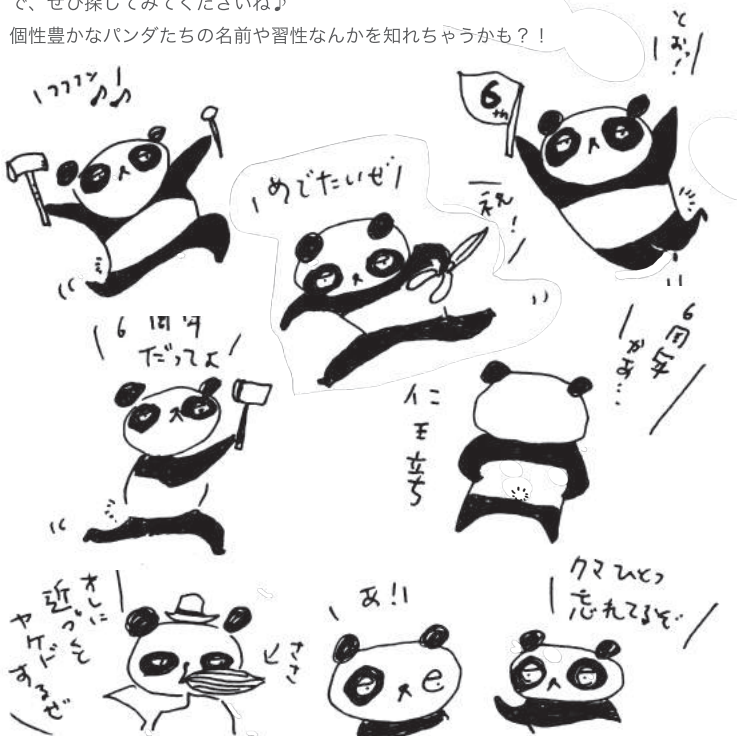 で、ぜひ探してみてくださいね♪
個性豊かなパンダたちの名前や習性なんかを知れちゃうかも？！
とおっ！
フフフン♪♪
6th
めでたいぜ
祝！
6周年
だってよ
6周年
かぁ…
仁王立ち
オレに
近づくと
ヤケド
するぜ
ささ
あ！
クマひとつ
忘れてるぞ